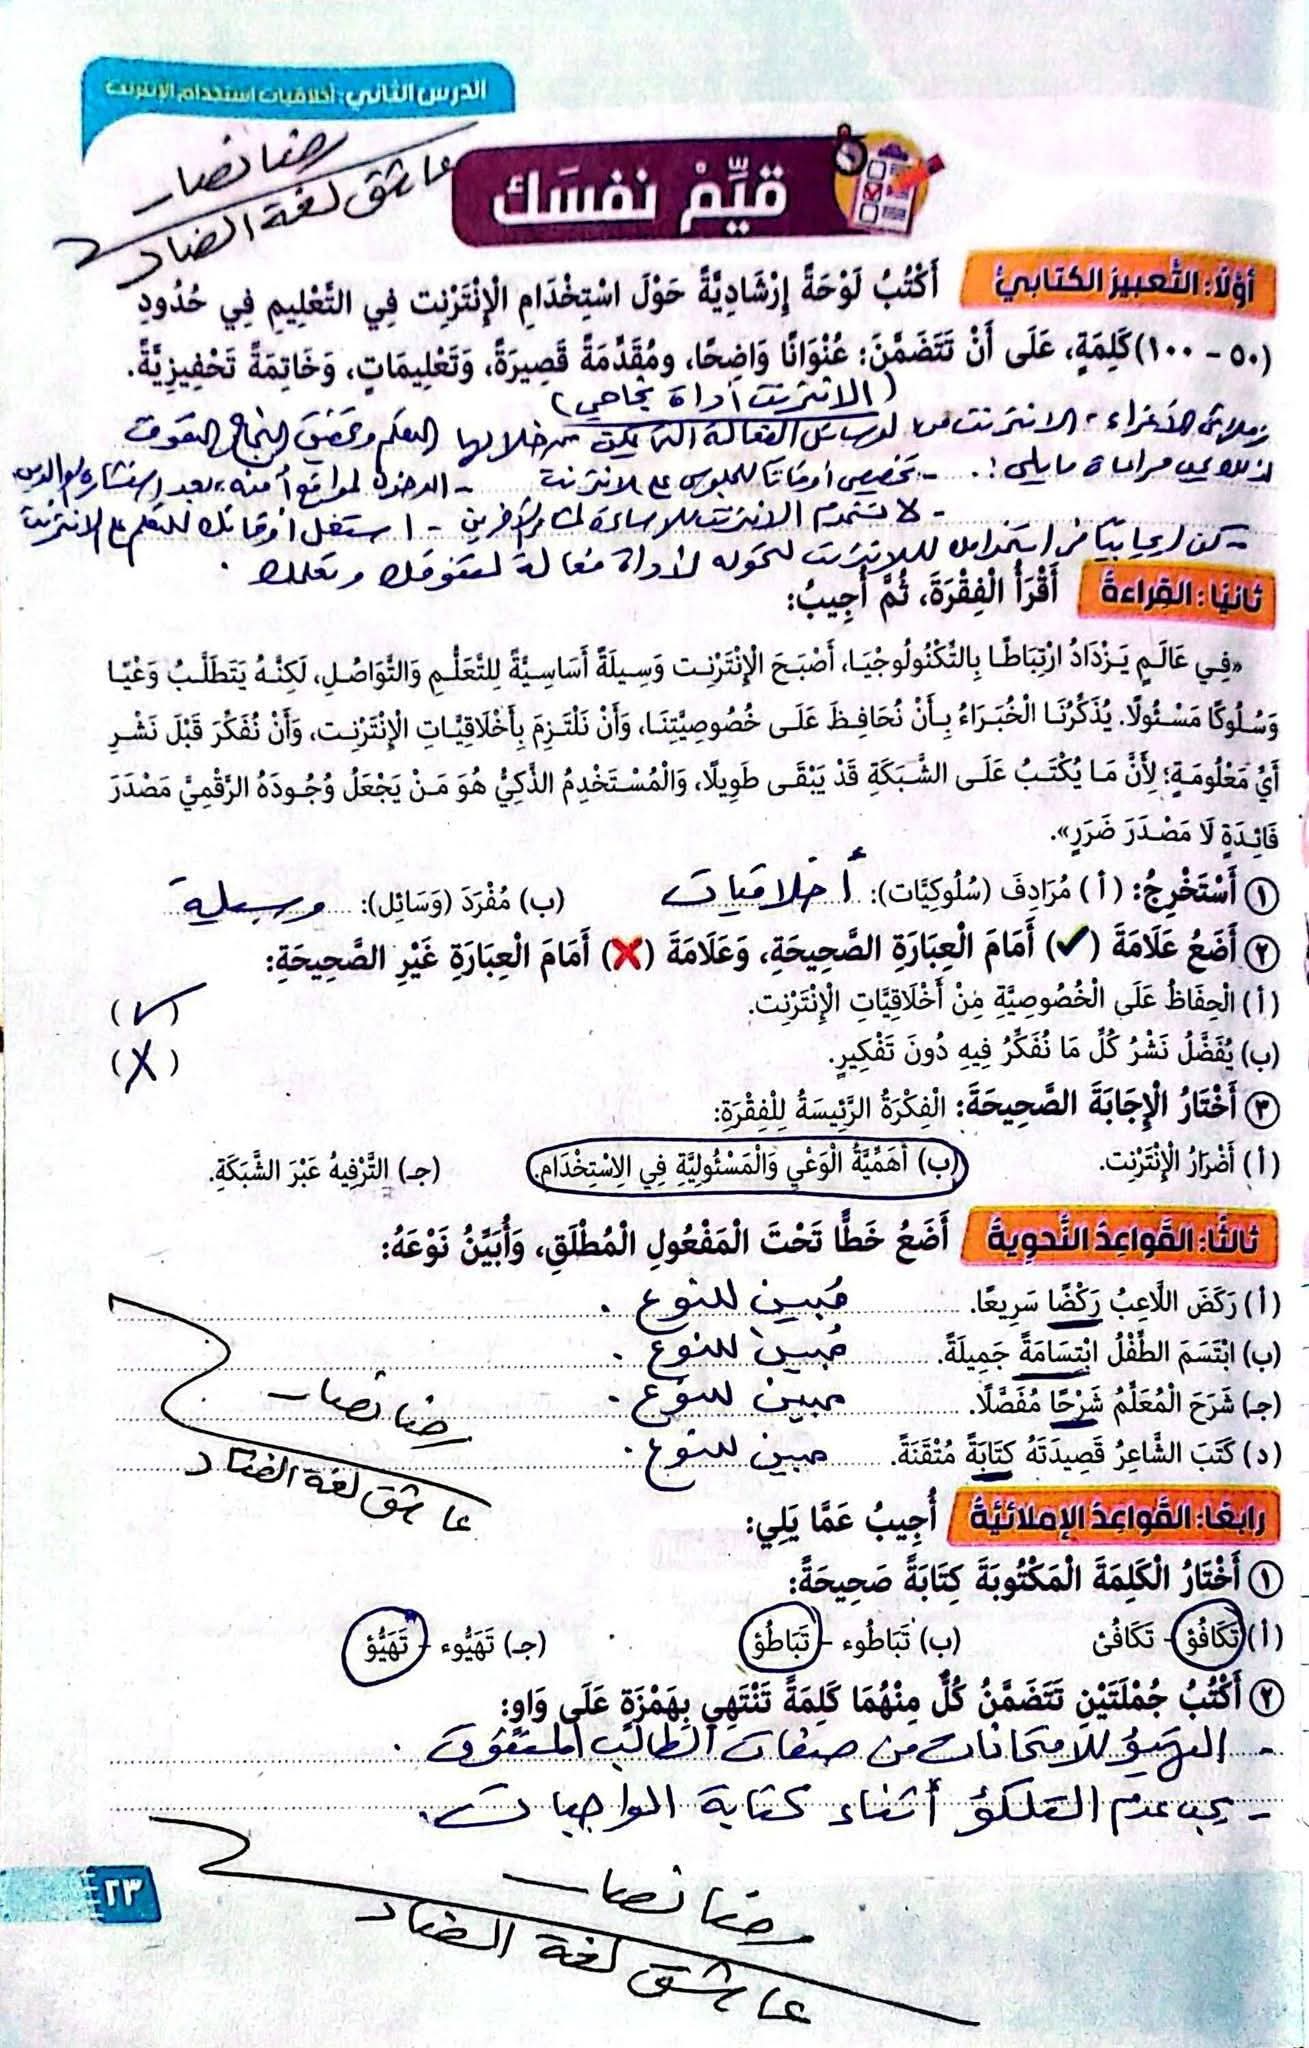 الدرس الثاني: أخلاقيات استخدام الإنترنت
رضا نصار
عاشق لغة الضاد
قيِّمْ نفسَك
أوَّلًا: التَّعبيرُ الكتابيُّ أَكْتُبُ لَوْحَةً إِرْشَادِيَّةً حَوْلَ اسْتِخْدَامِ الْإِنْتَرْنِت فِي التَّعْلِيمِ فِي حُدُودِ
(٥٠ - ١٠٠) كَلِمَةٍ، عَلَى أَنْ تَتَضَمَّنَ: عُنْوَانًا وَاضِحًا، ومُقَدِّمَةً قَصِيرَةً، وَتَعْلِيمَاتٍ، وَخَاتِمَةً تَحْفِيزِيَّةً.
(الانترنت أداة نجاحي)
زملائي الأعزاء، الانترنت من الوسائل الفعالة التي يمكن من خلالها التعلم وتحقيق النجاح والتفوق
لذلك يجب مراعاة ما يلي: - تخصيص أوقاتًا للجلوس على الانترنت - الدخول لمواقع آمنة، بعد استشارة الوالدين
- لا تستخدم الانترنت للإساءة لمشاعر الآخرين - استغل أوقاتك للتعلم على الانترنت
- كن إيجابيًا في استخدامك للانترنت لتحوله لأداة فعالة لتفوقك وتعلمك.
ثانيًا: القراءةُ أَقْرَأُ الْفِقْرَةَ، ثُمَّ أُجِيبُ:
«فِي عَالَمٍ يَزْدَادُ ارْتِبَاطًا بِالتِّكْنُولُوجْيَا، أَصْبَحَ الْإِنْتَرْنِت وَسِيلَةً أَسَاسِيَّةً لِلتَّعَلُّمِ وَالتَّوَاصُلِ، لَكِنَّهُ يَتَطَلَّبُ وَعْيًا
وَسُلُوكًا مَسْئُولًا. يُذَكِّرُنَا الْخُبَرَاءُ بِأَنْ نُحَافِظَ عَلَى خُصُوصِيَّتِنَا، وَأَنْ نَلْتَزِمَ بِأَخْلَاقِيَّاتِ الْإِنْتَرْنِت، وَأَنْ نُفَكِّرَ قَبْلَ نَشْرِ
أَيِّ مَعْلُومَةٍ؛ لِأَنَّ مَا يُكْتَبُ عَلَى الشَّبَكَةِ قَدْ يَبْقَى طَوِيلًا، وَالْمُسْتَخْدِمُ الذَّكِيُّ هُوَ مَنْ يَجْعَلُ وُجُودَهُ الرَّقْمِيَّ مَصْدَرَ
فَائِدَةٍ لَا مَصْدَرَ ضَرَرٍ».
١ أَسْتَخْرِجُ: (أ) مُرَادِفَ (سُلُوكِيَّات): أخلاقيات (ب) مُفْرَدَ (وَسَائِل): وسيلة
٢ أَضَعُ عَلَامَةَ (✓) أَمَامَ الْعِبَارَةِ الصَّحِيحَةِ، وَعَلَامَةَ (✗) أَمَامَ الْعِبَارَةِ غَيْرِ الصَّحِيحَةِ:
(أ) الْحِفَاظُ عَلَى الْخُصُوصِيَّةِ مِنْ أَخْلَاقِيَّاتِ الْإِنْتَرْنِت. (✓)
(ب) يُفَضَّلُ نَشْرُ كُلِّ مَا نُفَكِّرُ فِيهِ دُونَ تَفْكِيرٍ. (✗)
٣ أَخْتَارُ الْإِجَابَةَ الصَّحِيحَةَ: الْفِكْرَةُ الرَّئِيسَةُ لِلْفِقْرَةِ:
(أ) أَضْرَارُ الْإِنْتَرْنِت. (ب) أَهَمِّيَّةُ الْوَعْيِ وَالْمَسْئُولِيَّةِ فِي الِاسْتِخْدَامِ. (جـ) التَّرْفِيهُ عَبْرَ الشَّبَكَةِ.
ثالثًا: القواعدُ النَّحويةُ أَضَعُ خَطًّا تَحْتَ الْمَفْعُولِ الْمُطْلَقِ، وَأُبَيِّنُ نَوْعَهُ:
(أ) رَكَضَ اللَّاعِبُ رَكْضًا سَرِيعًا. مُبين للنوع.
(ب) ابْتَسَمَ الطِّفْلُ ابْتِسَامَةً جَمِيلَةً. مُبين للنوع.
(جـ) شَرَحَ الْمُعَلِّمُ شَرْحًا مُفَصَّلًا. مبين للنوع.
(د) كَتَبَ الشَّاعِرُ قَصِيدَتَهُ كِتَابَةً مُتْقَنَةً. مبين للنوع.
رضا نصار
عاشق لغة الضاد
رابعًا: القواعدُ الإملائيَّةُ أُجِيبُ عَمَّا يَلِي:
١ أَخْتَارُ الْكَلِمَةَ الْمَكْتُوبَةَ كِتَابَةً صَحِيحَةً:
(أ) تَكَافُؤ - تَكَافُئ (ب) تَبَاطُوء - تَبَاطُؤ (جـ) تَهَيُّوء - تَهَيُّؤ
٢ أَكْتُبُ جُمْلَتَيْنِ تَتَضَمَّنُ كُلٌّ مِنْهُمَا كَلِمَةً تَنْتَهِي بِهَمْزَةٍ عَلَى وَاوٍ:
- التهيؤ للامتحانات من صفات الطالب المتفوق.
- يجب عدم التلكؤ أثناء كتابة الواجبات.
رضا نصار
عاشق لغة الضاد
٢٣